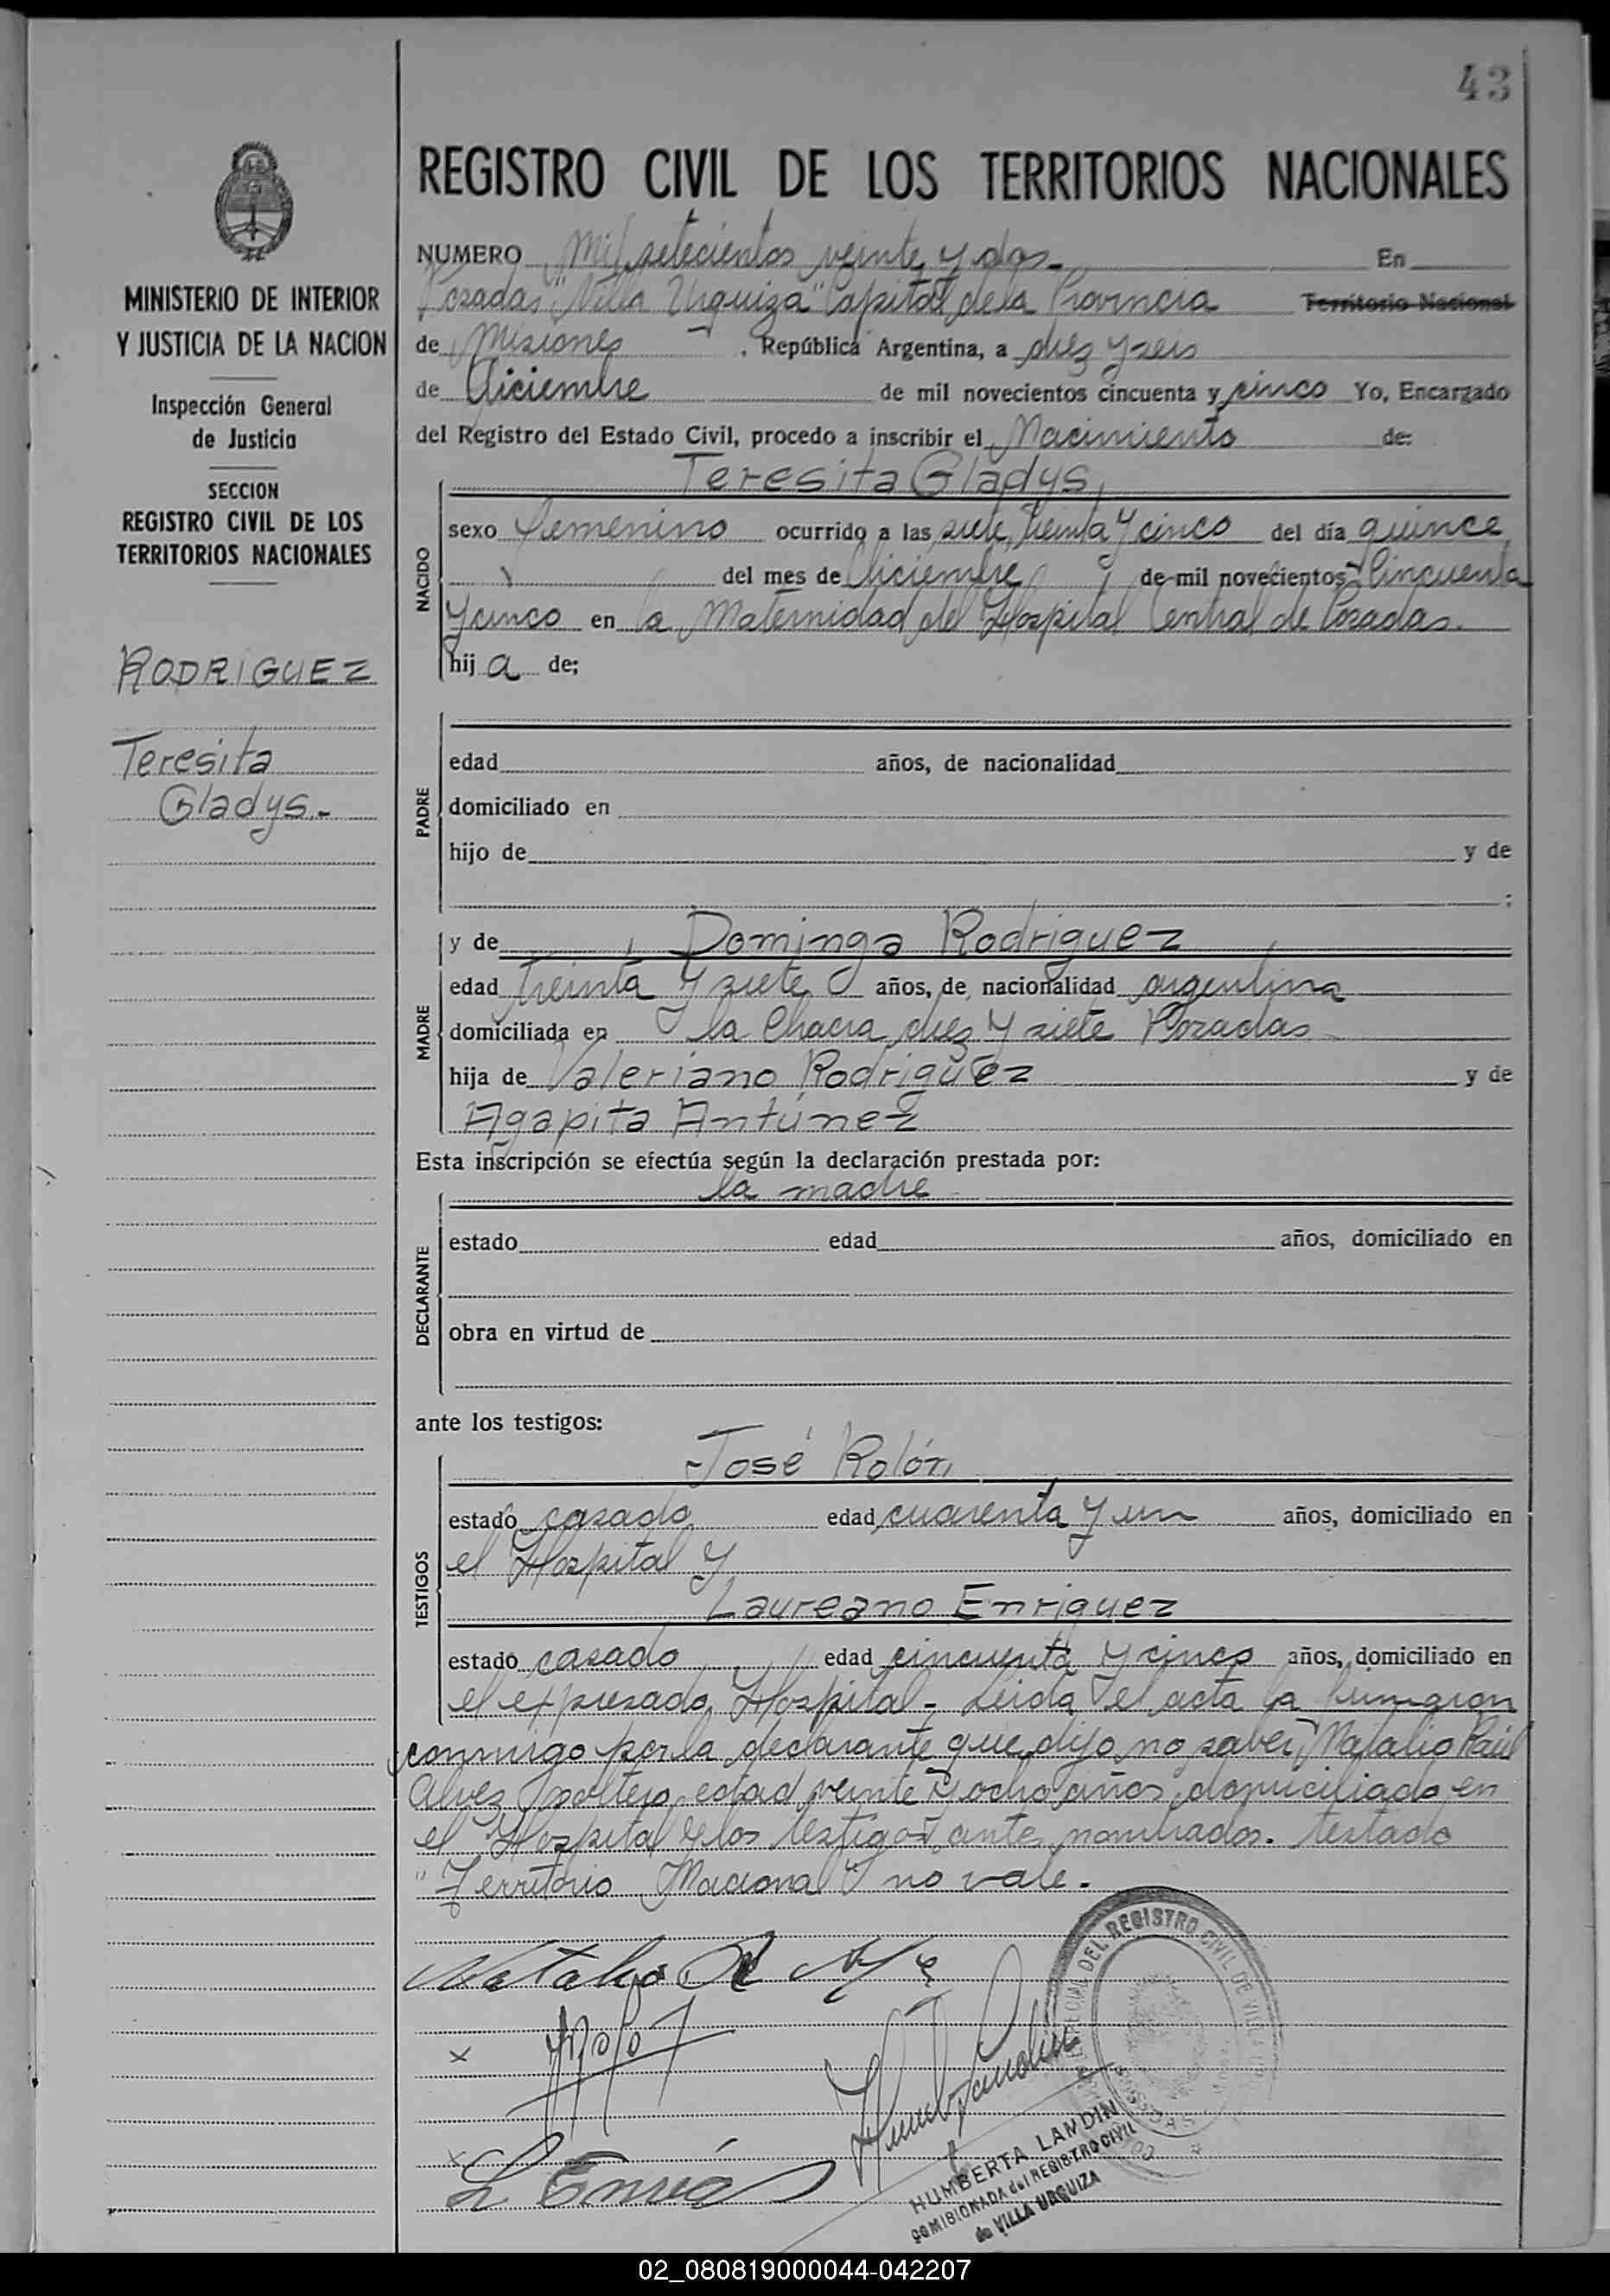 43
REGISTRO CIVIL DE LOS TERRITORIOS NACIONALES
MINISTERIO DE INTERIOR
Y JUSTICIA DE LA NACION
Inspección General
de Justicia
SECCION
REGISTRO CIVIL DE LOS
TERRITORIOS NACIONALES
RODRIGUEZ
Teresita
Gladys.-
NUMERO Mil setecientos veinte y dos- En
Posadas, "Villa Urquiza" Capital de la Provincia Territorio Nacional
de Misiones, República Argentina, a diez y seis
de Diciembre de mil novecientos cincuenta y cinco Yo, Encargado
del Registro del Estado Civil, procedo a inscribir el Nacimiento de:
NACIDO
Teresita Gladys,
sexo femenino ocurrido a las siete, treinta y cinco del día quince
del mes de Diciembre de mil novecientos Cincuenta
y cinco en la Maternidad del Hospital Central de Posadas.
hij a de;
PADRE
edad años, de nacionalidad
domiciliado en
hijo de y de
;
MADRE
y de Dominga Rodriguez
edad treinta y siete años, de nacionalidad argentina
domiciliada en la Chacra diez y siete Posadas
hija de Valeriano Rodriguez y de
Agapita Antúnez
Esta inscripción se efectúa según la declaración prestada por:
DECLARANTE
la madre
estado edad años, domiciliado en
obra en virtud de
ante los testigos:
TESTIGOS
José Rolón
estado casado edad cuarenta y un años, domiciliado en
el Hospital y
Laureano Enriquez
estado casado edad cincuenta y cinco años, domiciliado en
el expresado Hospital - Leida el acta la firmaron
conmigo por la declarante que dijo no saber, Natalio Raúl
Alvez soltero, edad veinte y ocho años, domiciliado en
el Hospital y los testigos antes nombrados. testado
"Territorio Nacional" no vale.
DEL REGISTRO CIVIL DE VILLA
POSADAS
HUMBERTA LANDIN
COMISIONADA del REGISTRO CIVIL
de VILLA URQUIZA
02_080819000044-042207